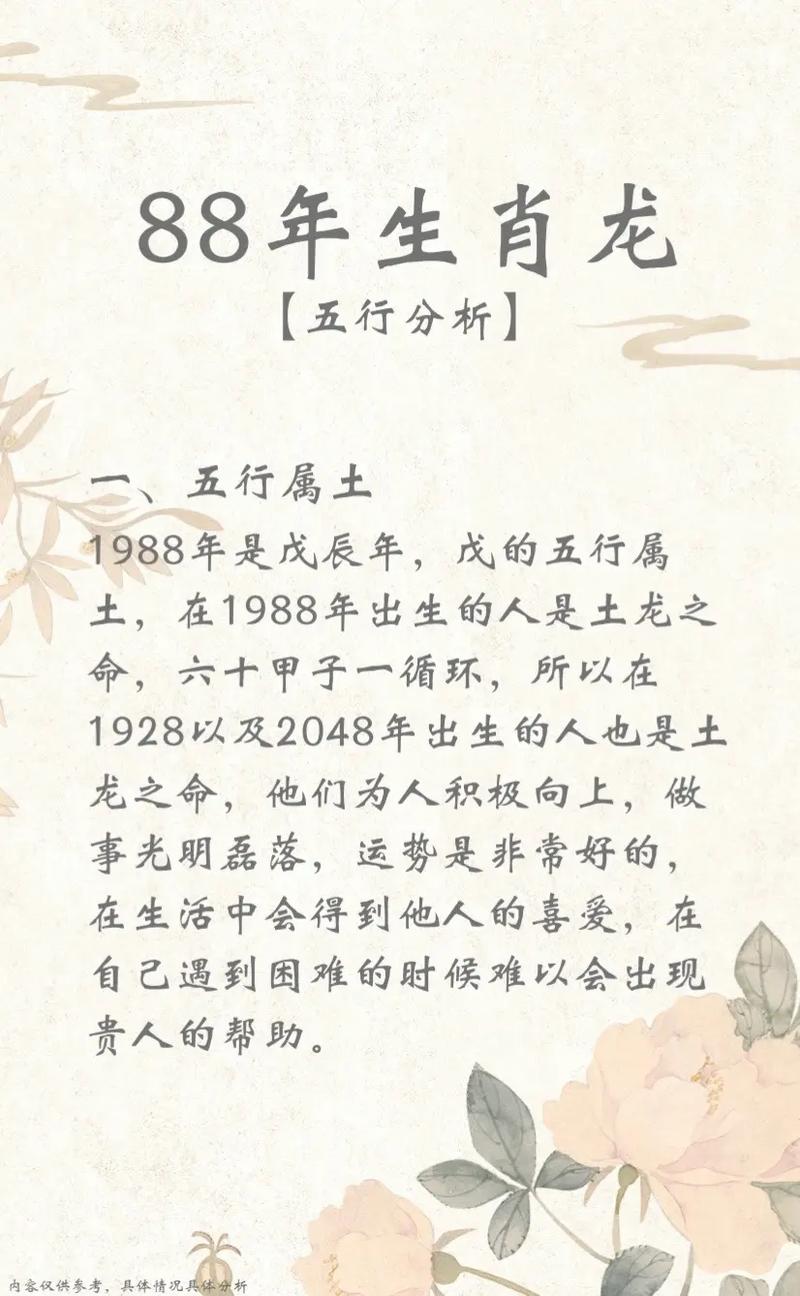 88年生肖龙
【五行分析】
一、五行属土
1988年是戊辰年，戊的五行属
土，在1988年出生的人是土龙之
命，六十甲子一循环，所以在
1928以及2048年出生的人也是土
龙之命，他们为人积极向上，做
事光明磊落，运势是非常好的，
在生活中会得到他人的喜爱，在
自己遇到困难的时候难以会出现
贵人的帮助。
内容仅供参考，具体情况具体分析